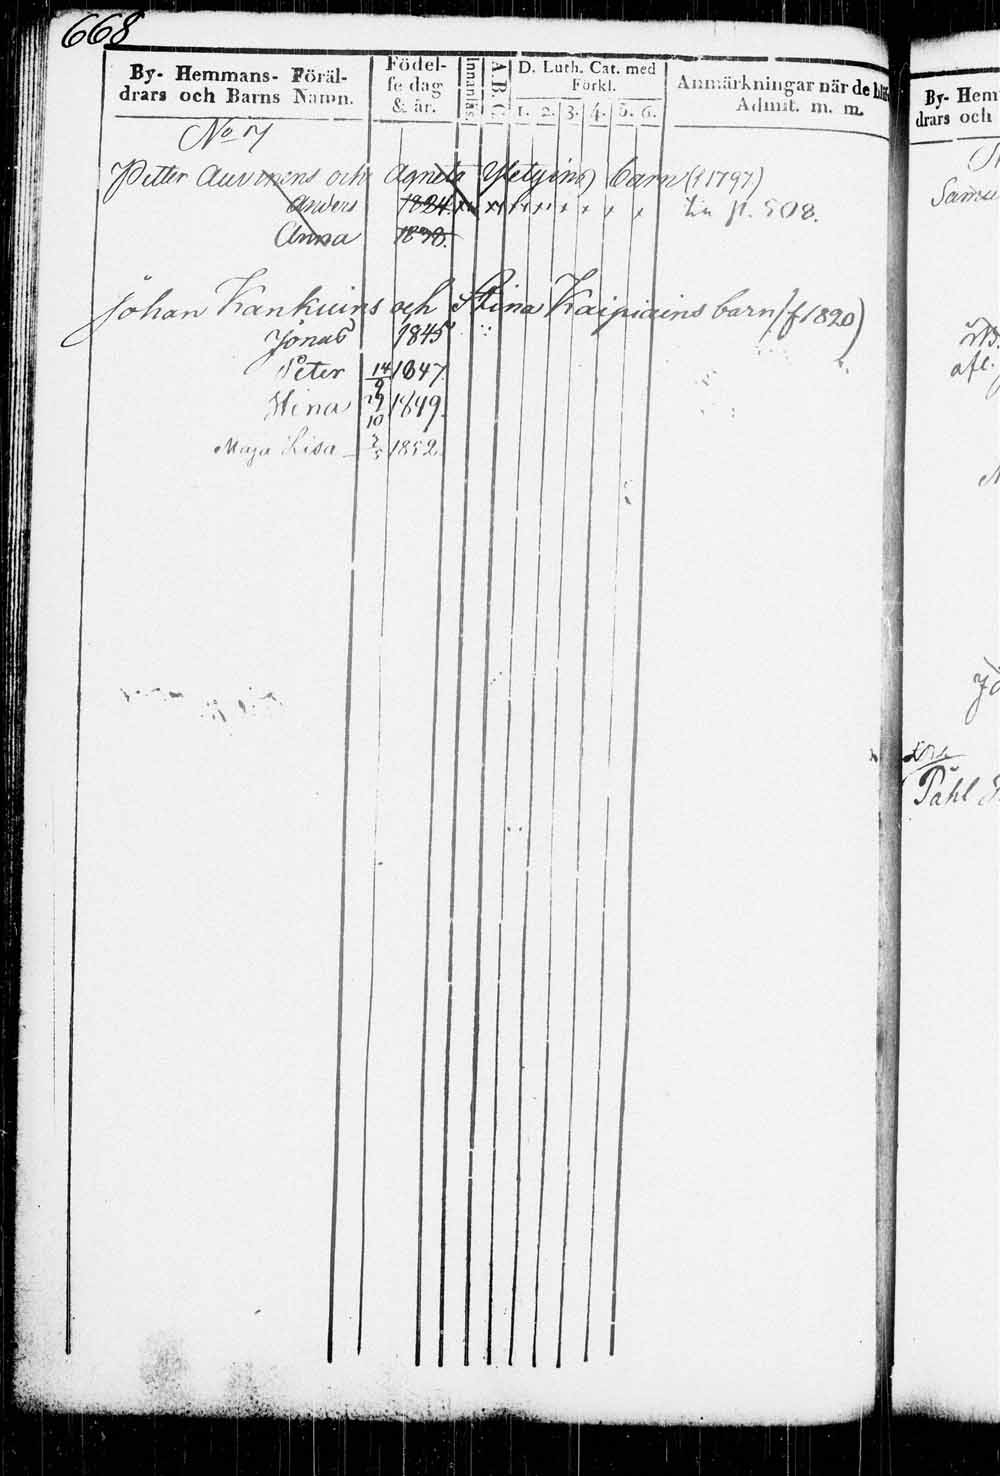 668
By- Hemmans- Föräl-
drars och Barns Namn.
Födel-
se dag
& år.
Innanläs
A. B. C.
D. Luth. Cat. med
Förkl.
1. 2. 3. 4. 5. 6.
Anmärkningar när de
Admit. m. m.
No 17
Petter Auvinens och Agneta barn (f 1797)
Anders 1834. x x x x x x x x p. 508.
Anna 1838.
Johan Kankuins och Stina Kaipiains barn (f 1820)
Jonas 1845
Peter 14/9 1847
Stina 29/10 1849.
Maja Lisa 1852.
By- Hem
drars och
Påhl